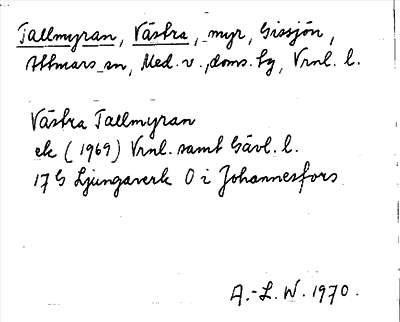 Tallmyran, Västra, myr, Gissjön,
Attmars sn, Med. v., doms. hg, Vrnl. l.
Västra Tallmyran
ek (1969) Vrnl. samt Gävl. l.
17 G Ljungaverk O i Johannesfors
A.-L. W. 1970.